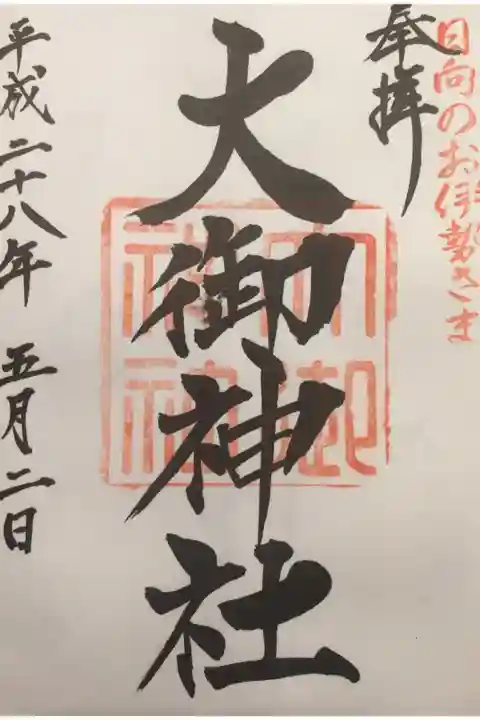 日向のお伊勢さま
奉拝
大御神社
平成二十八年 五月二日